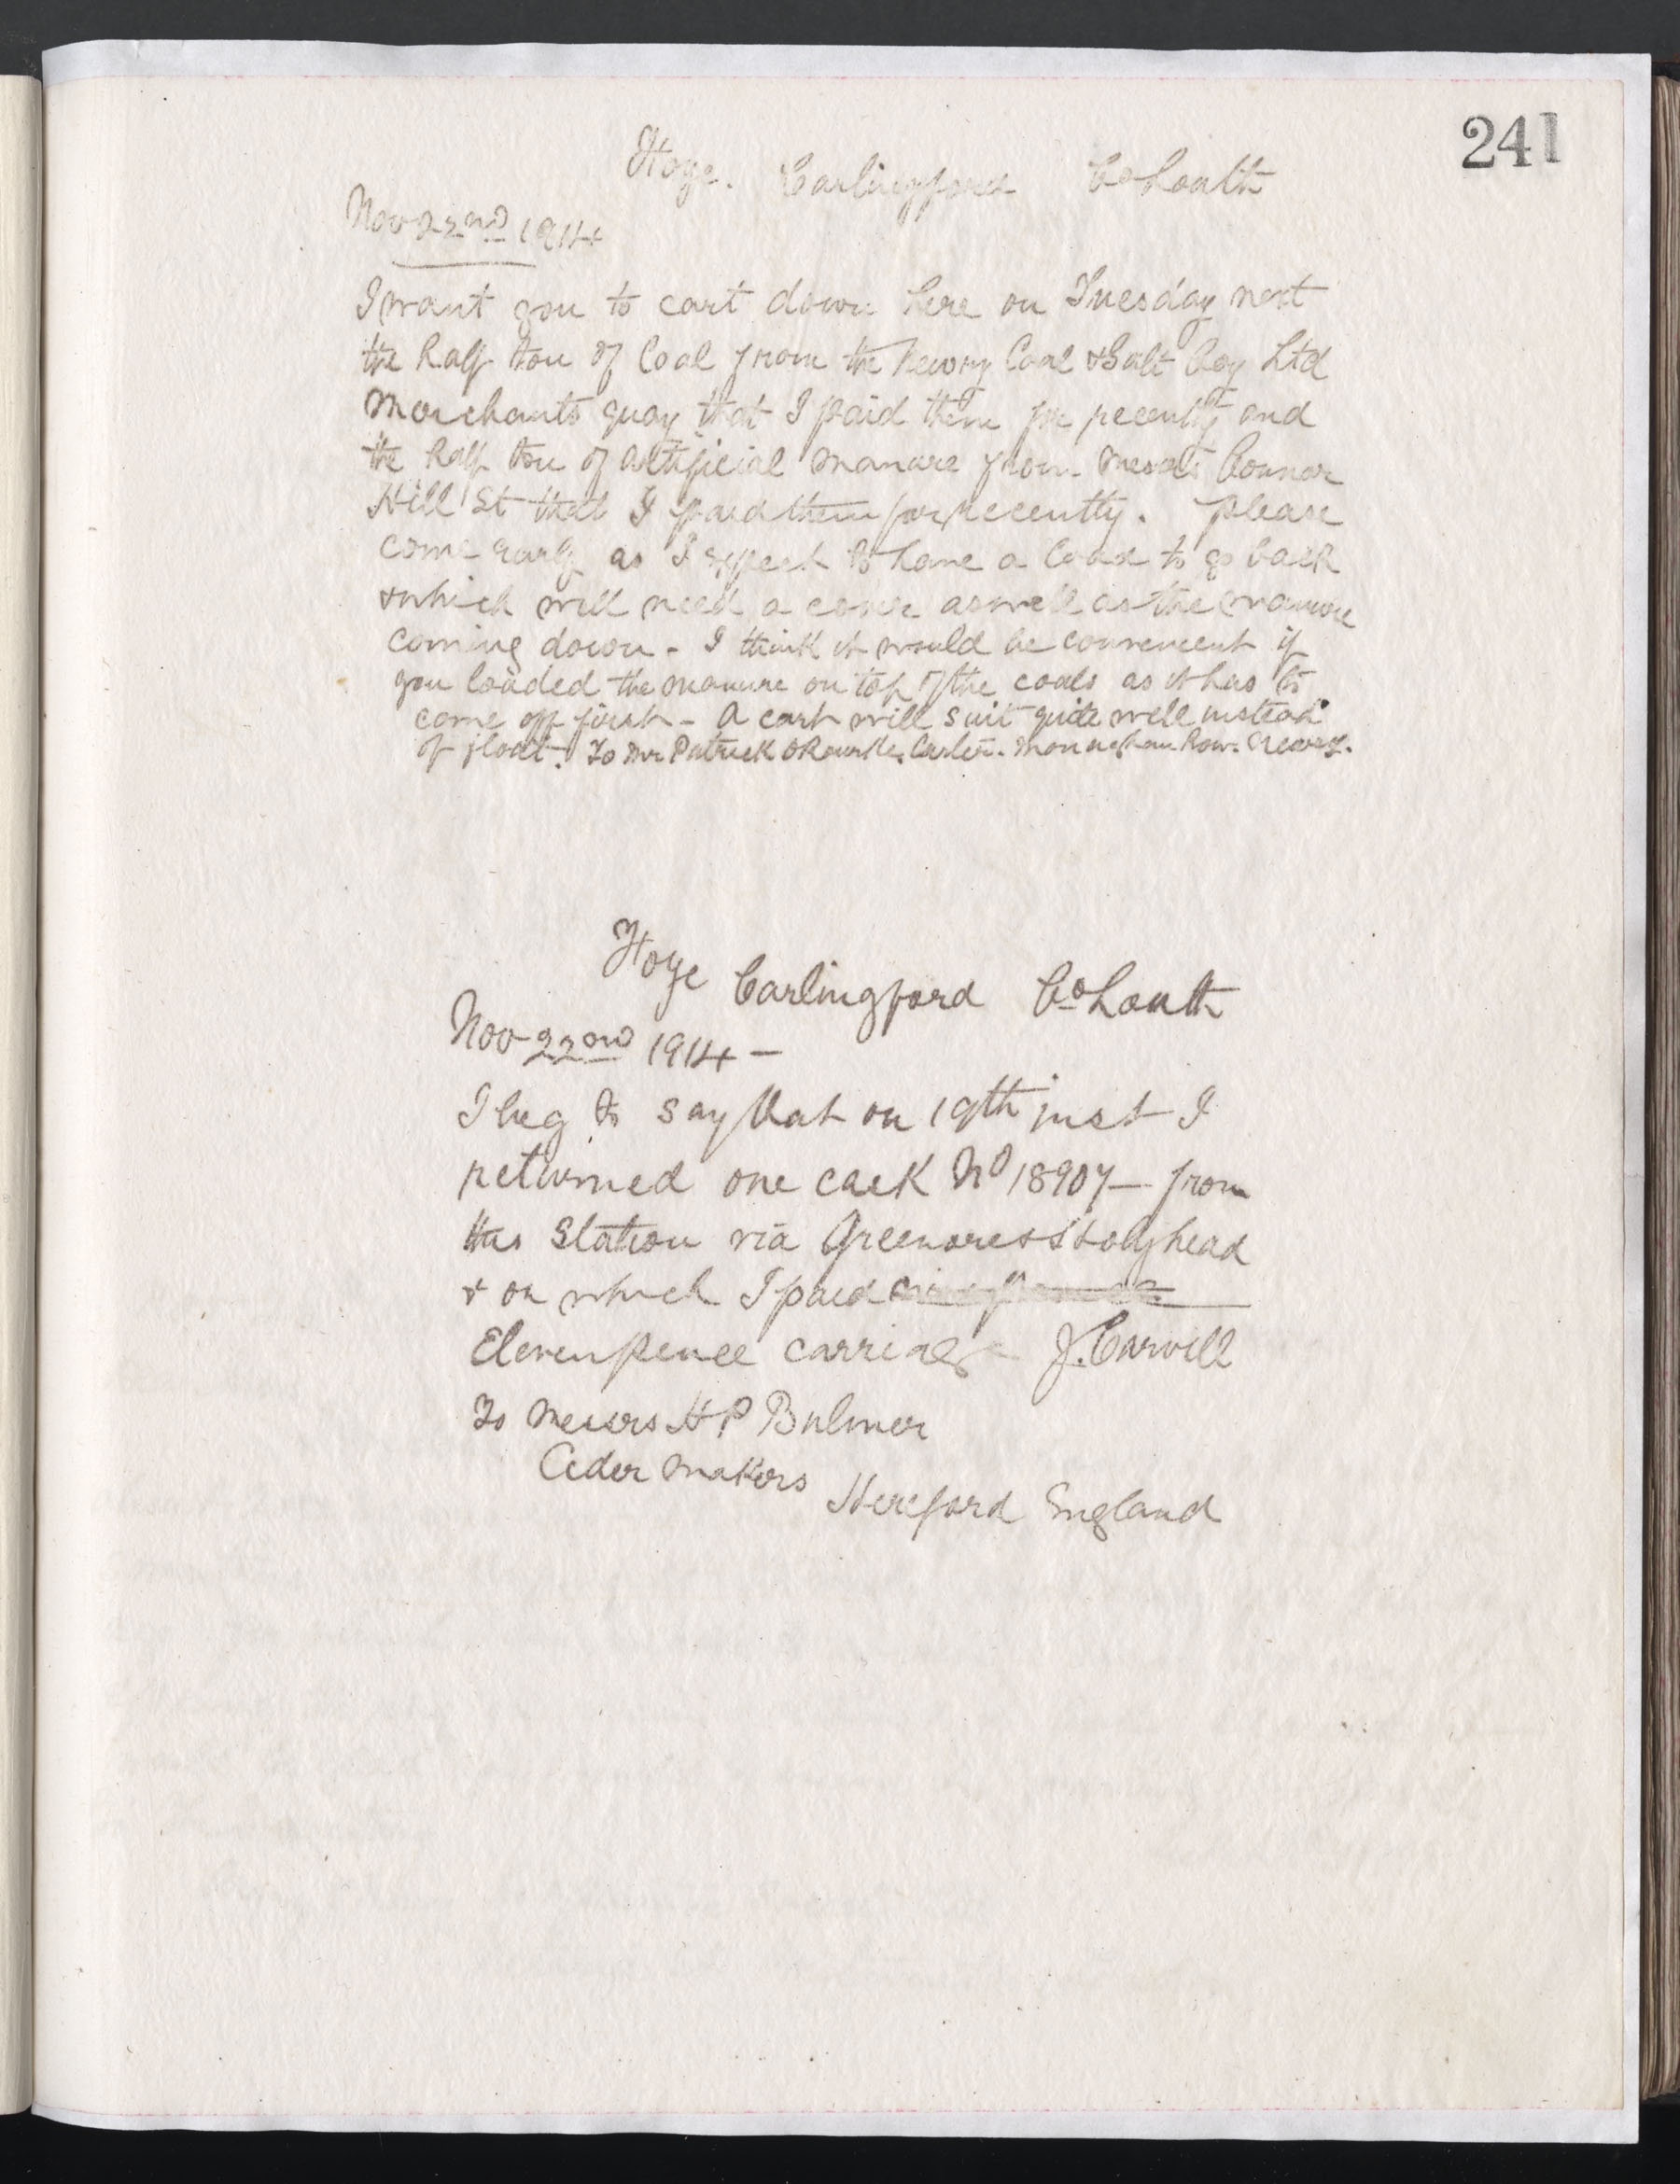 241
Hoye. Carlingford Co Louth
Nov 22nd 1914
I want you to cart down here on Tuesday next
the half ton of Coal from the Newry Coal & Salt Coy Ltd
Merchants quay that I paid them for recently and
the half ton of artificial manure from Messrs Connor
Hill St that I paid them for recently. please
come early as I expect to have a load to go back
& which will need a cover as well as the manure
coming down - I think it would be convenient if
you loaded the manure on top of the coals as it has to
come off first - A cart will suit quite well instead
of float. To Mr Patrick O Rourke. Carter. Monaghan Row. Newry.
Hoye Carlingford Co Louth
Nov 22nd 1914 -
I beg to say that on 19th inst I
returned one cask No 18907 - from
this Station via Greenore & Holyhead
& on which I paid
Elevenpence carriage J. Carvill
To Messrs H P Bulmer
Cider makers
Hereford England